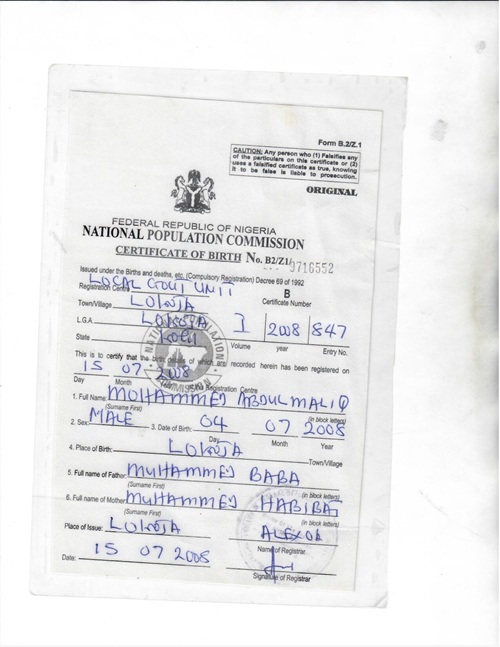 Form B.2/Z.1
CAUTION: Any person who (1) Falsifies any
of the particulars on this certificate or (2)
uses a falsified certificate as true, knowing
it to be false is liable to prosecution.
ORIGINAL
FEDERAL REPUBLIC OF NIGERIA
NATIONAL POPULATION COMMISSION
CERTIFICATE OF BIRTH No. B2/Z1/ 9716552
Issued under the Births and deaths, etc (Compulsory Registration) Decree 69 of 1992
Registration Centre LOCAL GOVT UNIT B
Town/Village LOKOJA Certificate Number
L.G.A. LOKOJA I 2008 847
State KOGI Volume year Entry No.
This is to certify that the birth details of which are recorded herein has been registered on
15 07 2008
Day Month Year at the Registration Centre
1. Full Name: MUHAMMED ABDULMALIQ
(Surname First) (in block letters)
2. Sex: MALE 3. Date of Birth: 04 07 2008
Day Month Year
4. Place of Birth: LOKOJA Town/Village
5. Full name of Father: MUHAMMED BABA
(Surname First) (in block letters)
6. Full name of Mother: MUHAMMED HABIBAT
(Surname First) (in block letters)
Place of Issue: LOKOJA
Name of Registrar
Date: 15 07 2008
Signature of Registrar